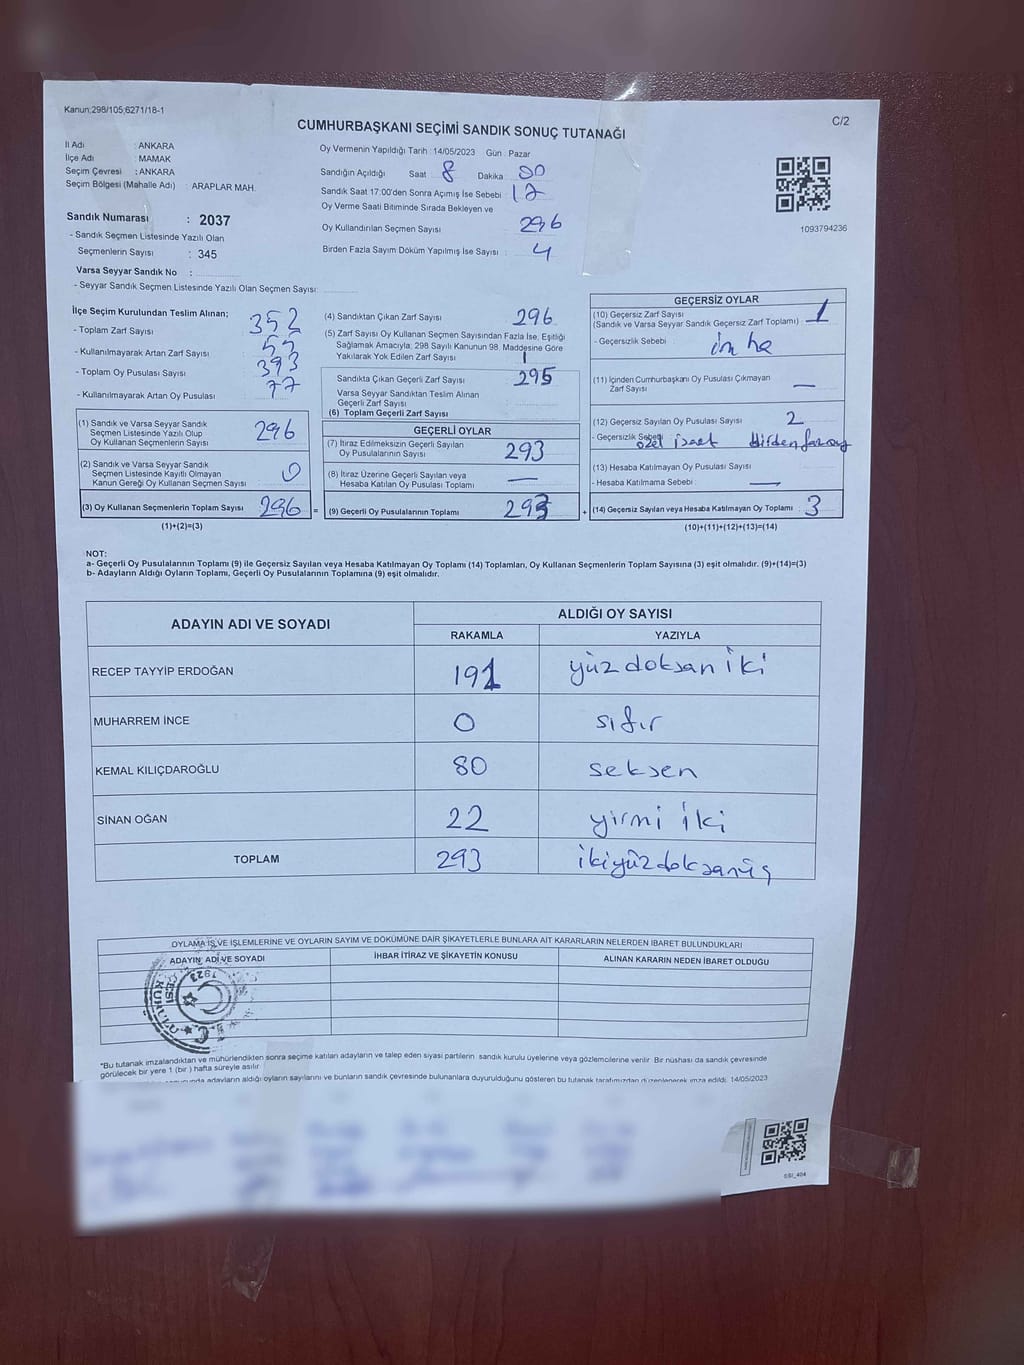 Kanun;298/105;6271/18-1
C/2
CUMHURBAŞKANI SEÇİMİ SANDIK SONUÇ TUTANAĞI
İl Adı : ANKARA
İlçe Adı : MAMAK
Seçim Çevresi : ANKARA
Seçim Bölgesi (Mahalle Adı) : ARAPLAR MAH.
Sandık Numarası : 2037
- Sandık Seçmen Listesinde Yazılı Olan
Seçmenlerin Sayısı : 345
Varsa Seyyar Sandık No :
- Seyyar Sandık Seçmen Listesinde Yazılı Olan Seçmen Sayısı:
Oy Vermenin Yapıldığı Tarih : 14/05/2023 Gün : Pazar
Sandığın Açıldığı Saat 8 Dakika
Sandık Saat 17:00'den Sonra Açımış İse Sebebi 17
Oy Verme Saati Bitiminde Sırada Bekleyen ve
Oy Kullandırılan Seçmen Sayısı 296
Birden Fazla Sayım Döküm Yapılmış İse Sayısı : 4
1093794236
İlçe Seçim Kurulundan Teslim Alınan;
- Toplam Zarf Sayısı 352
- Kullanılmayarak Artan Zarf Sayısı
- Toplam Oy Pusulası Sayısı 393
- Kullanılmayarak Artan Oy Pusulası 77
(1) Sandık ve Varsa Seyyar Sandık
Seçmen Listesinde Yazılı Olup
Oy Kullanan Seçmenlerin Sayısı 296
(2) Sandık ve Varsa Seyyar Sandık
Seçmen Listesinde Kayıtlı Olmayan
Kanun Gereği Oy Kullanan Seçmen Sayısı 0
(3) Oy Kullanan Seçmenlerin Toplam Sayısı 296 =
(1)+(2)=(3)
(4) Sandıktan Çıkan Zarf Sayısı 296
(5) Zarf Sayısı Oy Kullanan Seçmen Sayısından Fazla İse, Eşitliği
Sağlamak Amacıyla, 298 Sayılı Kanunun 98. Maddesine Göre
Yakılarak Yok Edilen Zarf Sayısı 1
Sandıkta Çıkan Geçerli Zarf Sayısı 295
Varsa Seyyar Sandıktan Teslim Alınan
Geçerli Zarf Sayısı
(6) Toplam Geçerli Zarf Sayısı
GEÇERLİ OYLAR
(7) İtiraz Edilmeksizin Geçerli Sayılan
Oy Pusulalarının Sayısı 293
(8) İtiraz Üzerine Geçerli Sayılan veya
Hesaba Katılan Oy Pusulası Toplamı —
(9) Geçerli Oy Pusulalarının Toplamı 293 +
GEÇERSİZ OYLAR
(10) Geçersiz Zarf Sayısı
(Sandık ve Varsa Seyyar Sandık Geçersiz Zarf Toplamı) 1
- Geçersizlik Sebebi : imha
(11) İçinden Cumhurbaşkanı Oy Pusulası Çıkmayan
Zarf Sayısı —
(12) Geçersiz Sayılan Oy Pusulası Sayısı 2
- Geçersizlik Sebebi özel işaret
(13) Hesaba Katılmayan Oy Pusulası Sayısı
- Hesaba Katılmama Sebebi : —
(14) Geçersiz Sayılan veya Hesaba Katılmayan Oy Toplamı : 3
(10)+(11)+(12)+(13)=(14)
NOT:
a- Geçerli Oy Pusulalarının Toplamı (9) ile Geçersiz Sayılan veya Hesaba Katılmayan Oy Toplamı (14) Toplamları, Oy Kullanan Seçmenlerin Toplam Sayısına (3) eşit olmalıdır. (9)+(14)=(3)
b- Adayların Aldığı Oyların Toplamı, Geçerli Oy Pusulalarının Toplamına (9) eşit olmalıdır.
ADAYIN ADI VE SOYADI ALDIĞI OY SAYISI
RAKAMLA YAZIYLA
RECEP TAYYİP ERDOĞAN 191 yüz doksan iki
MUHARREM İNCE 0 sıfır
KEMAL KILIÇDAROĞLU 80 seksen
SİNAN OĞAN 22 yirmi iki
TOPLAM 293 ikiyüz doksanüç
OYLAMA İŞ VE İŞLEMLERİNE VE OYLARIN SAYIM VE DÖKÜMÜNE DAİR ŞİKAYETLERLE BUNLARA AİT KARARLARIN NELERDEN İBARET BULUNDUKLARI
ADAYIN ADI VE SOYADI İHBAR İTİRAZ VE ŞİKAYETİN KONUSU ALINAN KARARIN NEDEN İBARET OLDUĞU
1923
T.C.
*Bu tutanak imzalandıktan ve mühürlendikten sonra seçime katılan adayların ve talep eden siyasi partilerin sandık kurulu üyelerine veya gözlemcilerine verilir. Bir nüshası da sandık çevresinde
görülecek bir yere 1 (bir) hafta süreyle asılır.
adayların aldığı oyların sayılarını ve bunların sandık çevresinde bulunanlara duyurulduğunu gösteren bu tutanak tarafımızdan düzenlenerek imza edildi. 14/05/2023
SSI_404